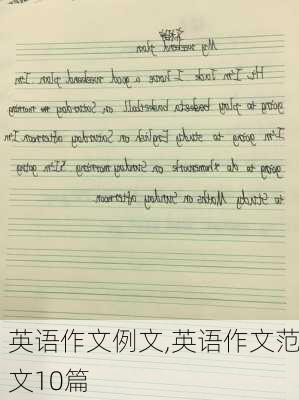 My weekend plan
Hi, I'm Jack I have a good weekend plan I'm
going to play basketball on Saturday morning
I'm going to study English on Saturday afternoon I'm
going to do homework on Sunday morning I'm going
to study Maths on Sunday afternoon
英语作文例文,英语作文范
文10篇